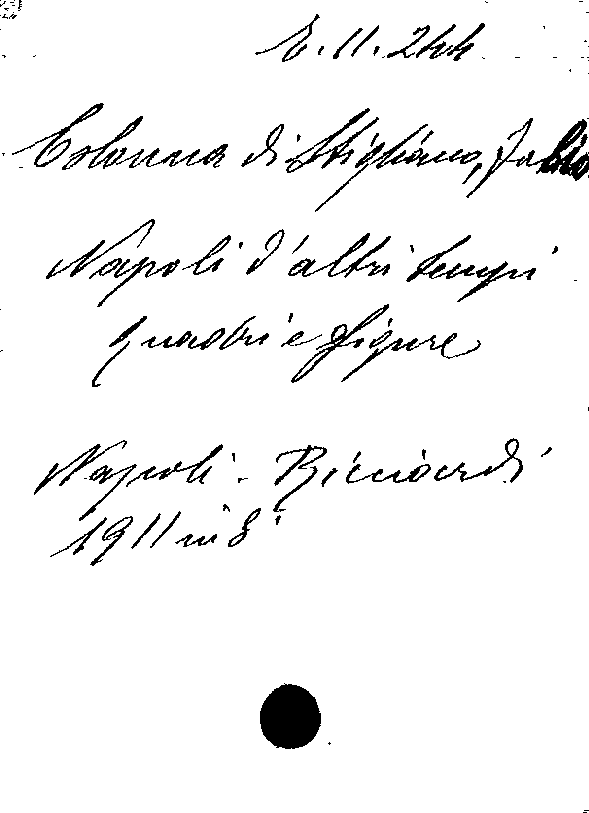 E.11.244
Colonna di Stigliano, Fabio
Napoli d'altri tempi
quadri e figure
Napoli - Ricciardi
1911 in 8°